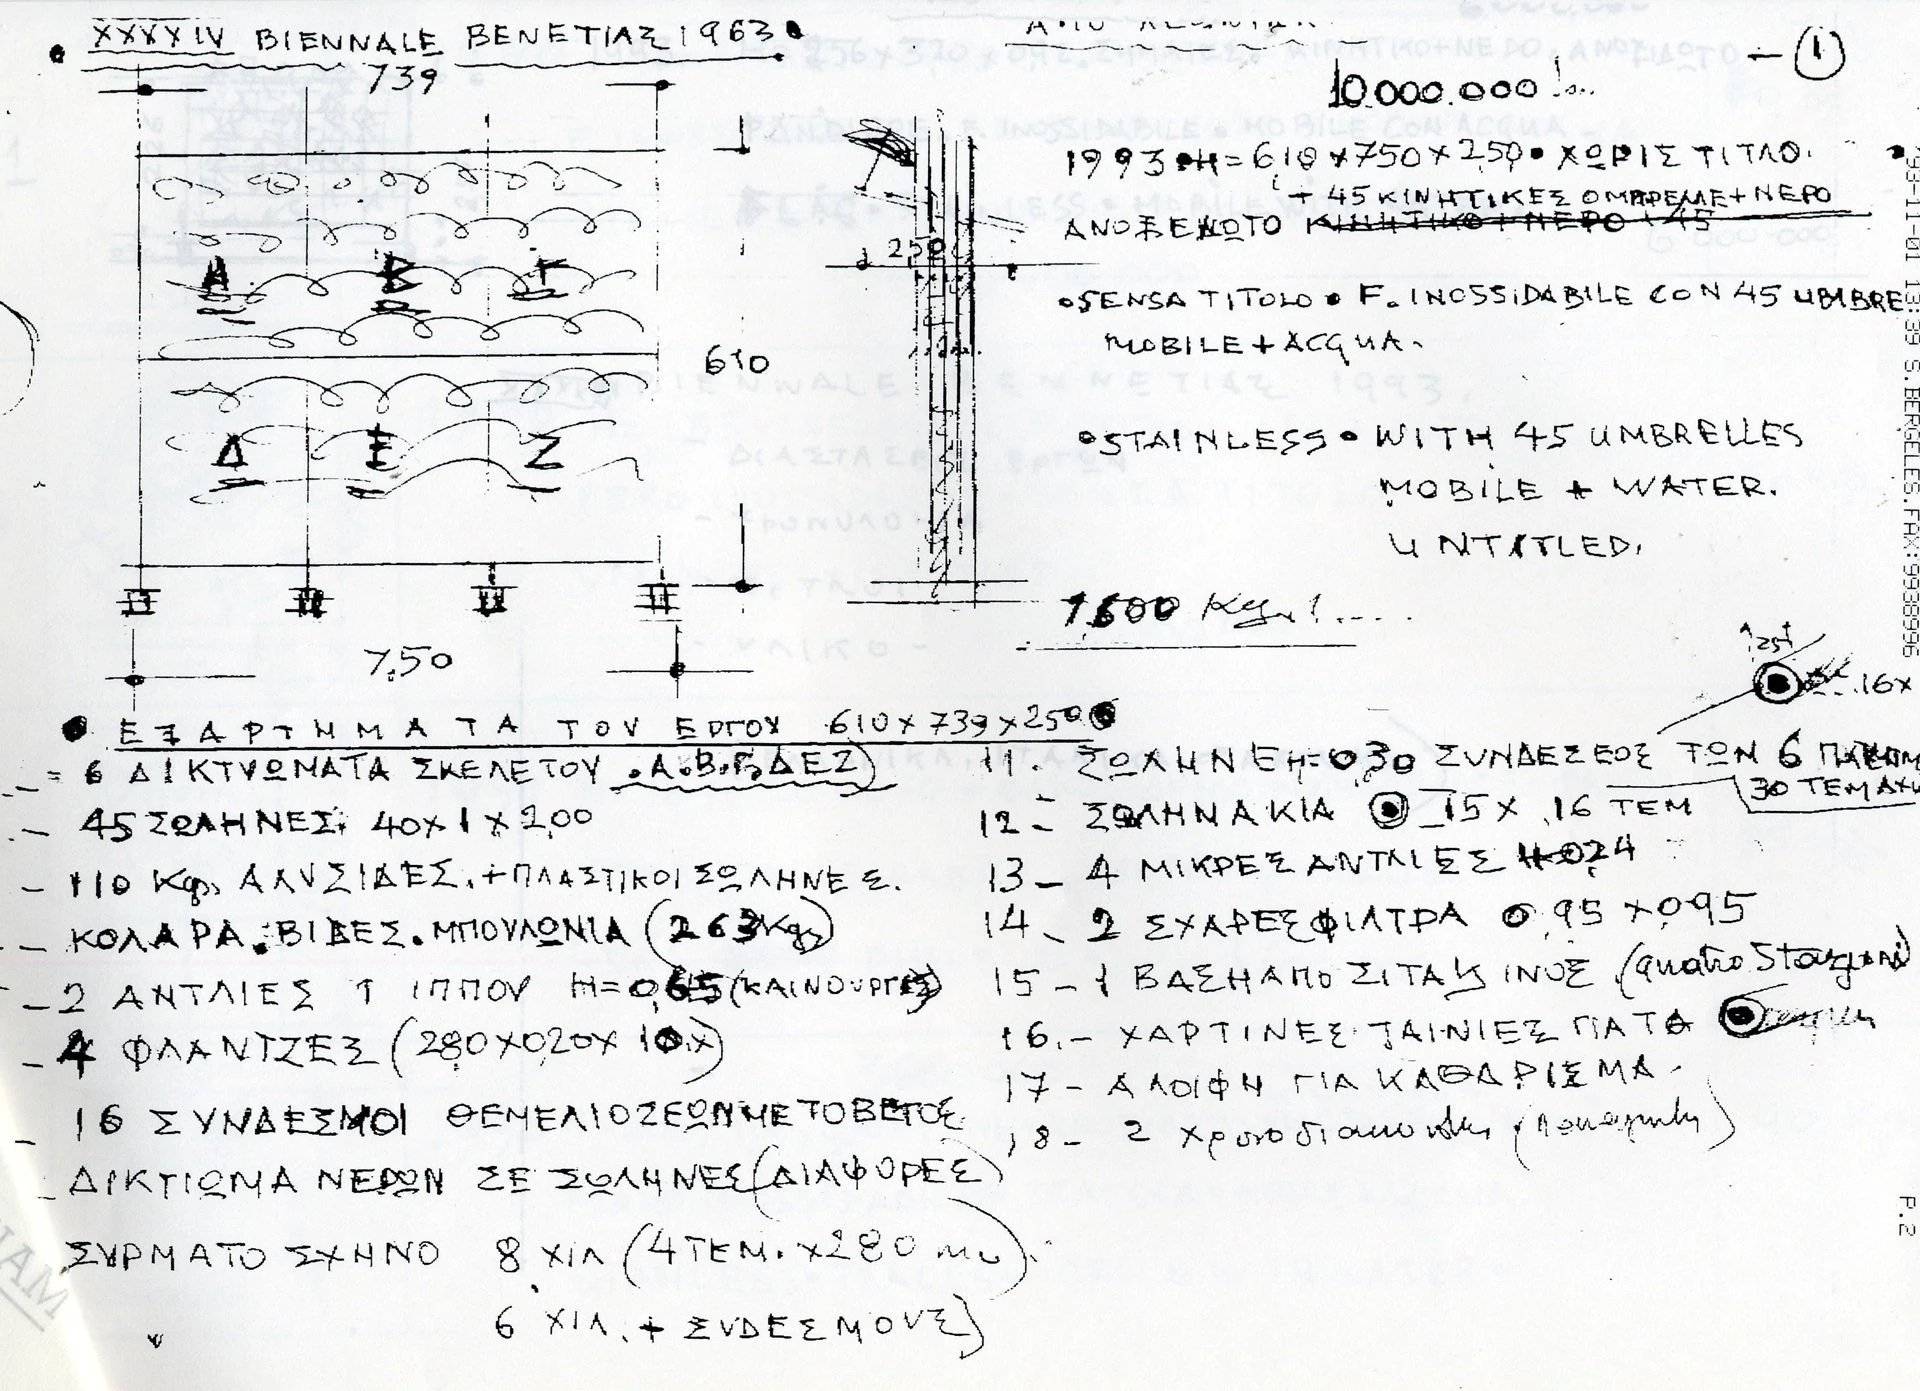 XXXXIV BIENNALE ΒΕΝΕΤΙΑΣ 1963
739
Α Β Γ
Δ Ε Ζ
610
7,50
250
1
10.000.000
1993 • H=610×750×250 • ΧΩΡΙΣ ΤΙΤΛΟ.
+ 45 ΚΙΝΗΤΙΚΕΣ ΟΜΠΡΕΛΕ + ΝΕΡΟ
ΑΝΟΞΕΙΔΩΤΟ ΚΙΝΗΤΙΚΟ + ΝΕΡΟ + 45
• SENSA TITOLO • F. INOSSIDABILE CON 45 UMBRE
MOBILE + ACQUA.
• STAINLESS • WITH 45 UMBRELLES
MOBILE + WATER.
UNTITLED.
1,600 Kg. !....
25
16×
• ΕΞΑΡΤΗΜΑΤΑ ΤΟΥ ΕΡΓΟΥ 610×739×250 •
= 6 ΔΙΚΤΥΩΜΑΤΑ ΣΚΕΛΕΤΟΥ .Α.Β.Γ.ΔΕΖ)
- 45 ΣΩΛΗΝΕΣ: 40×1×2,00
- 110 Kg. ΑΛΥΣΙΔΕΣ. + ΠΛΑΣΤΙΚΟΙ ΣΩΛΗΝΕΣ.
- ΚΟΛΑΡΑ. ΒΙΔΕΣ. ΜΠΟΥΛΩΝΙΑ (263 Kg)
- 2 ΑΝΤΛΙΕΣ 1 ΙΠΠΟΥ H=0,65 (ΚΑΙΝΟΥΡΓΙΕΣ)
- 4 ΦΛΑΝΤΖΕΣ (2,80×0,20×10.χ)
- 16 ΣΥΝΔΕΣΜΟΙ ΘΕΜΕΛΙΟΖΕΩΝ ΜΕ ΤΟ ΒΕΤΟΣ
- ΔΙΚΤΙΩΜΑ ΝΕΡΩΝ ΣΕ ΣΩΛΗΝΕΣ (ΔΙΑΦΟΡΕΣ)
ΣΥΡΜΑΤΟΣΧΗΝΟ 8 ΧΙΛ (4 ΤΕΜ. ×280
6 ΧΙΛ. + ΣΥΔΕΣΜΟΥΣ)
11. ΣΩΛΗΝΕ H=0,30 ΣΥΝΔΕΣΕΟΣ ΤΩΝ 6
30 ΤΕΜΑΧΙ
12 - ΣΩΛΗΝΑΚΙΑ 15× 16 ΤΕΜ
13 - 4 ΜΙΚΡΕΣ ΑΝΤΛΙΕΣ H=0,24
14 - 2 ΣΧΑΡΕΣ ΦΙΛΤΡΑ 0,95×0,95
15 - 1 ΒΑΣΗ ΑΠΟ
16. - ΧΑΡΤΙΝΕΣ ΤΑΙΝΙΕΣ ΓΙΑ ΤΑ
17 - ΑΛΟΙΦΗ ΓΙΑ ΚΑΘΑΡΙΣΜΑ.
18 - 2
'93-11-01 13:39 S.BERGELES.FAX:9938996
P.2